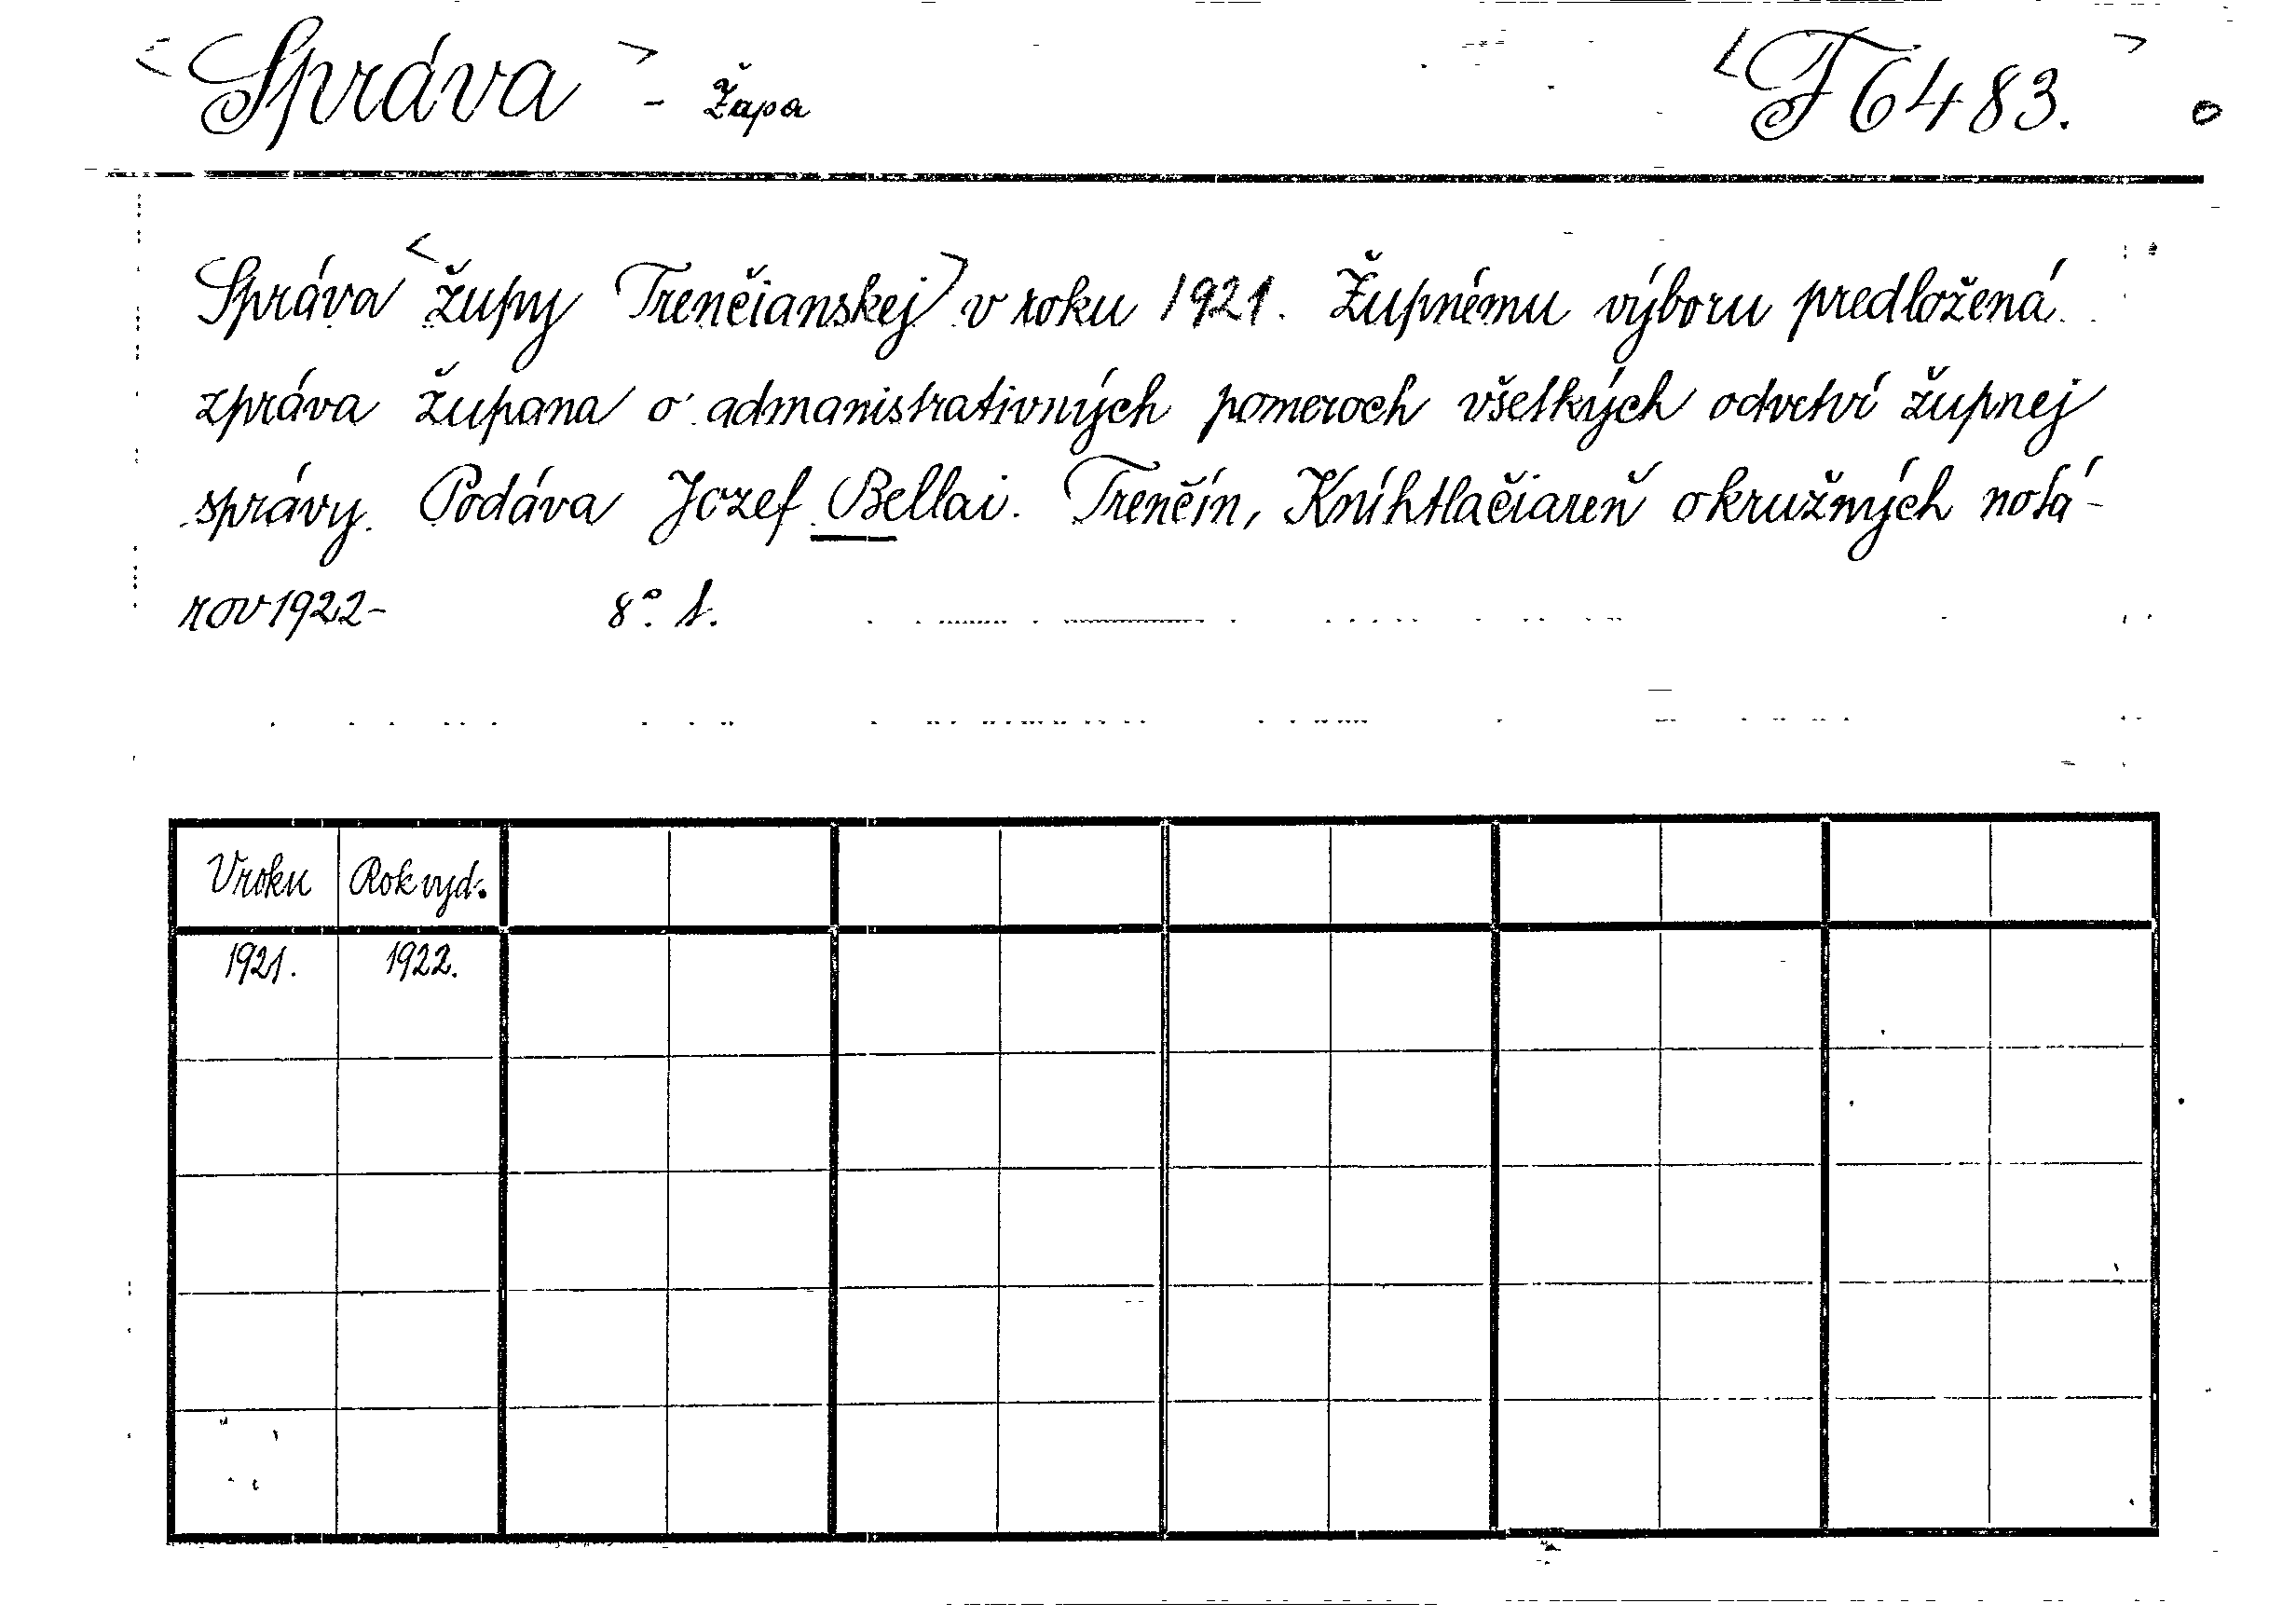 <Správa> - Župa <F 6483.>
Správa <župy Trenčianskej> v roku 1921. Župnému výboru predložená
zpráva župana o admanistrativných pomeroch všetkých odvetví župnej
správy. Podáva Jozef Bellai. Trenčín, Kníhtlačiareň okružných notá-
rov 1922- 8°. s.
V roku Rok vyd.
1921. 1922.